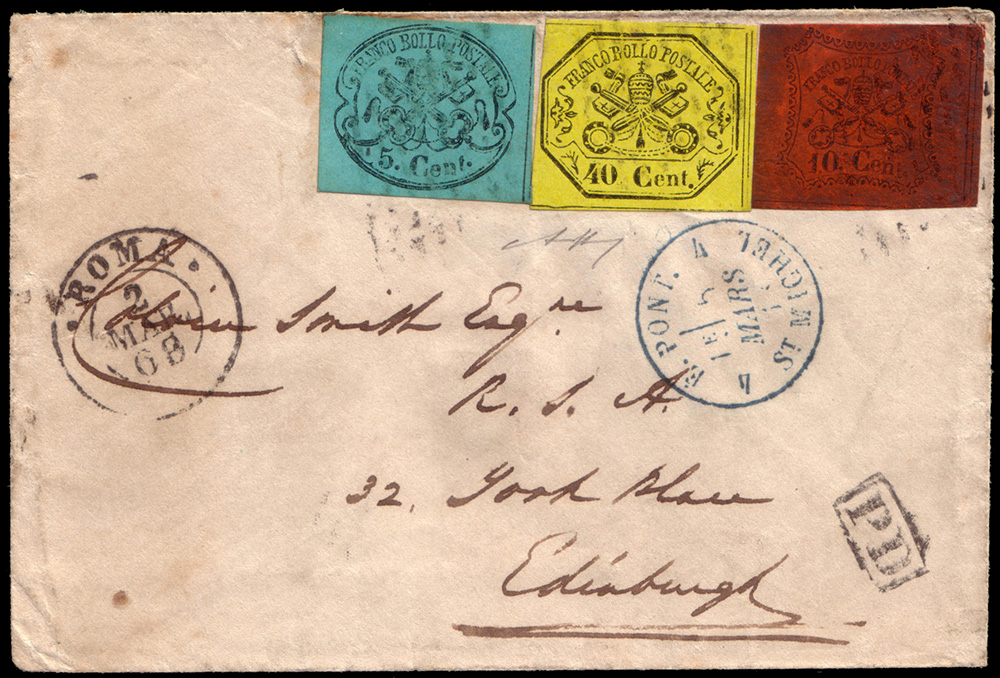 FRANCO BOLLO POSTALE
5. Cent.
FRANCO BOLLO POSTALE
40 Cent.
FRANCO BOLLO
10 Cent.
ROMA
2
MAR
68
E. PONT. 4 ST MICHEL 4
5
MARS
Colvin Smith Esqre
R. S. A.
32, York Place
Edinburgh
PD